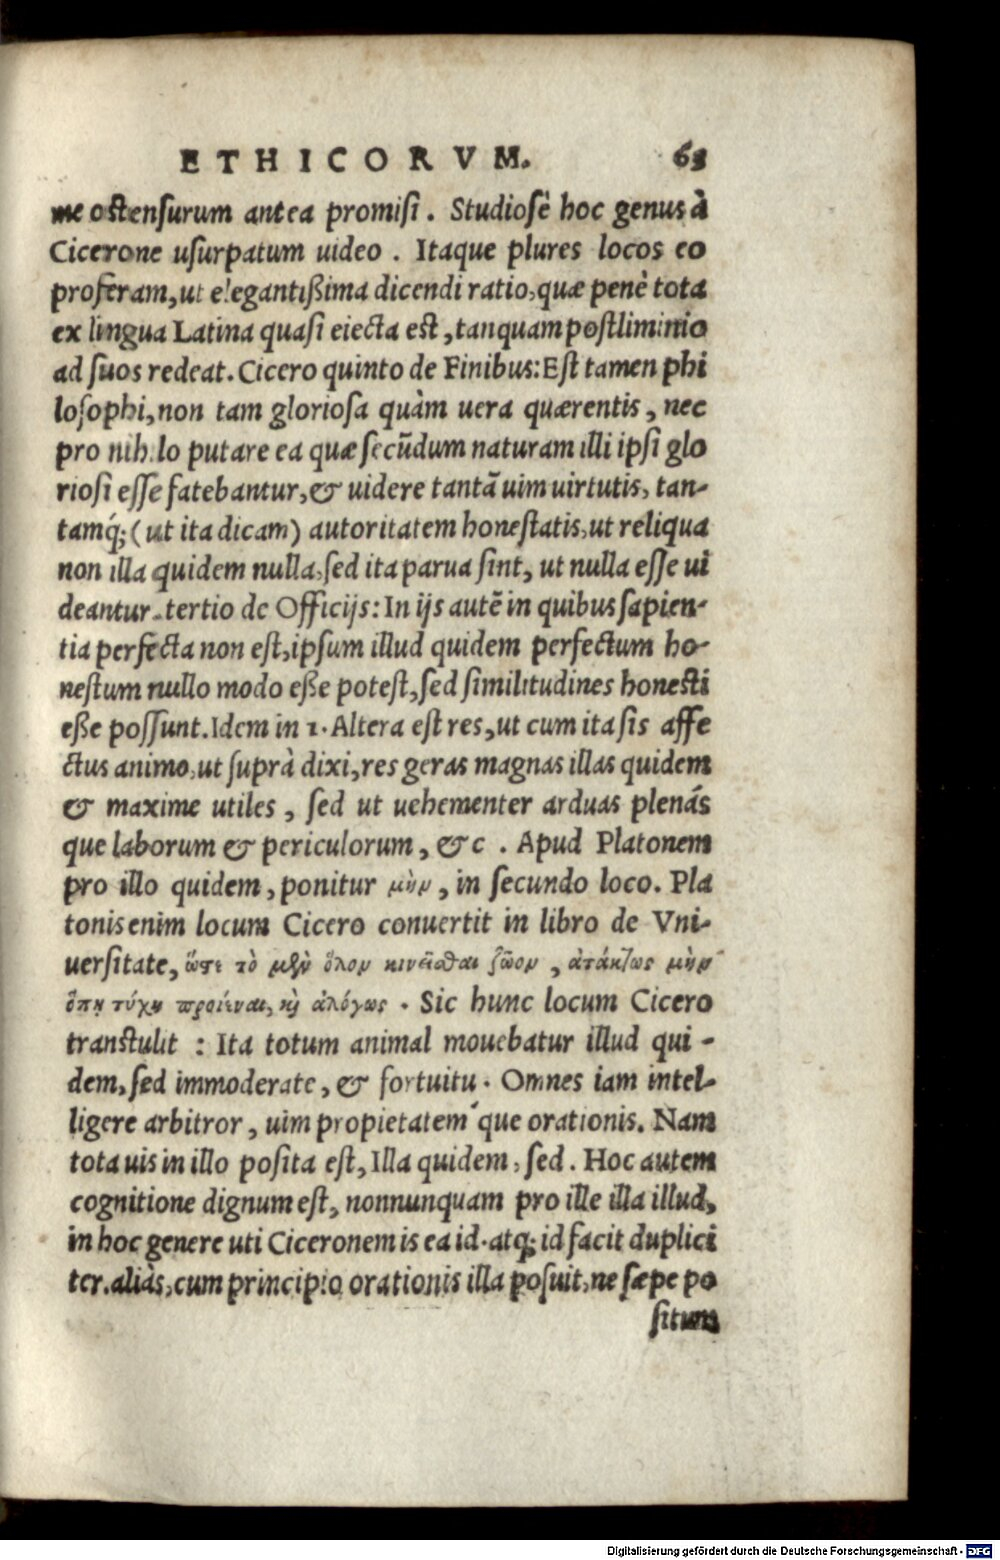 ETHICORVM. 63
me ostensurum antea promisi. Studiosè hoc genus à
Cicerone usurpatum uideo. Itaque plures locos eo
proferam, ut elegantißima dicendi ratio, quæ penè tota
ex lingua Latina quasi eiecta est, tanquam postliminio
ad suos redeat. Cicero quinto de Finibus: Est tamen phi
losophi, non tam gloriosa quàm uera quærentis, nec
pro nihilo putare ea quæ secũdum naturam illi ipsi glo
riosi esse fatebantur, & uidere tantã uim uirtutis, tan-
tamq́; (ut ita dicam) autoritatem honestatis, ut reliqua
non illa quidem nulla, sed ita parua sint, ut nulla esse ui
deantur. tertio de Officijs: In ijs autẽ in quibus sapien-
tia perfecta non est, ipsum illud quidem perfectum ho-
nestum nullo modo eße potest, sed similitudines honesti
eße possunt. Idem in 1. Altera est res, ut cum ita sis affe
ctus animo, ut suprà dixi, res geras magnas illas quidem
& maxime utiles, sed ut uehementer arduas plenás
que laborum & periculorum, &c. Apud Platonem
pro illo quidem, ponitur μὴν, in secundo loco. Pla
tonis enim locum Cicero conuertit in libro de Vni-
uersitate, ὥστε τὸ μὲν ὅλον κινεῖσθαι ζῶον, ἀτάκτως μὴν
ὅπῃ τύχῃ προϊέναι, καὶ ἀλόγως. Sic hunc locum Cicero
transtulit : Ita totum animal mouebatur illud qui-
dem, sed immoderate, & fortuitu. Omnes iam intel-
ligere arbitror, uim propietateḿ que orationis. Nam
tota uis in illo posita est, Illa quidem, sed. Hoc autem
cognitione dignum est, nonnunquam pro ille illa illud,
in hoc genere uti Ciceronem is ea id. atq; id facit duplici
ter. aliàs, cum principio orationis illa posuit, ne sæpe po
situm
Digitalisierung gefördert durch die Deutsche Forschungsgemeinschaft - DFG